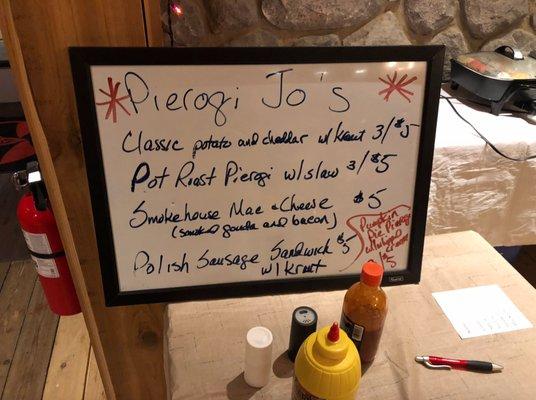 Pierogi Jo's
Classic potato and cheddar w/ Kraut 3/$5
Pot Roast Pierogi w/slaw 3/$5
Smokehouse Mac & Cheese $5
(smoked gouda and bacon)
Polish Sausage Sandwich $5
w/ Kraut
Pumpkin
Pie Pierogi
w/whipped
cheese
$5